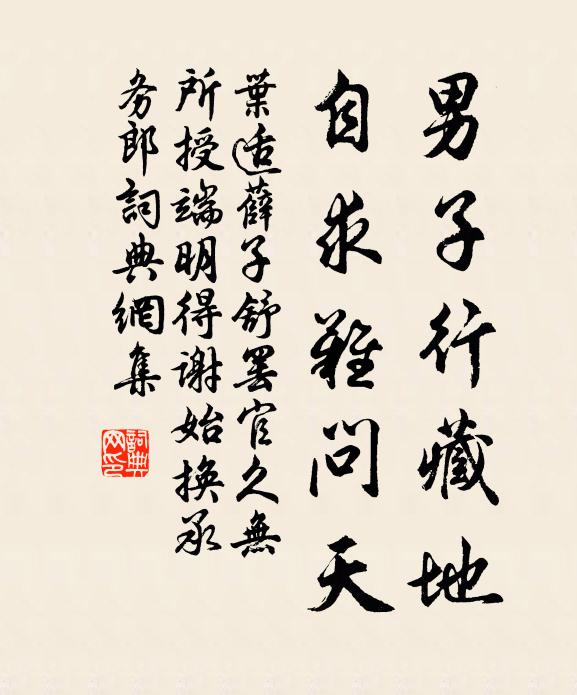 男子行藏地
自求難問天
葉适薛子舒罢官久無
所授端明得谢始换承
务郎詞典網集
詞典网印